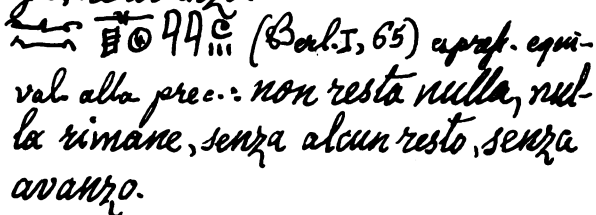 (Berl. I, 65) espress. equi-
val. alla prec.: non resta nulla, nul-
la rimane, senza alcun resto, senza
avanzo.